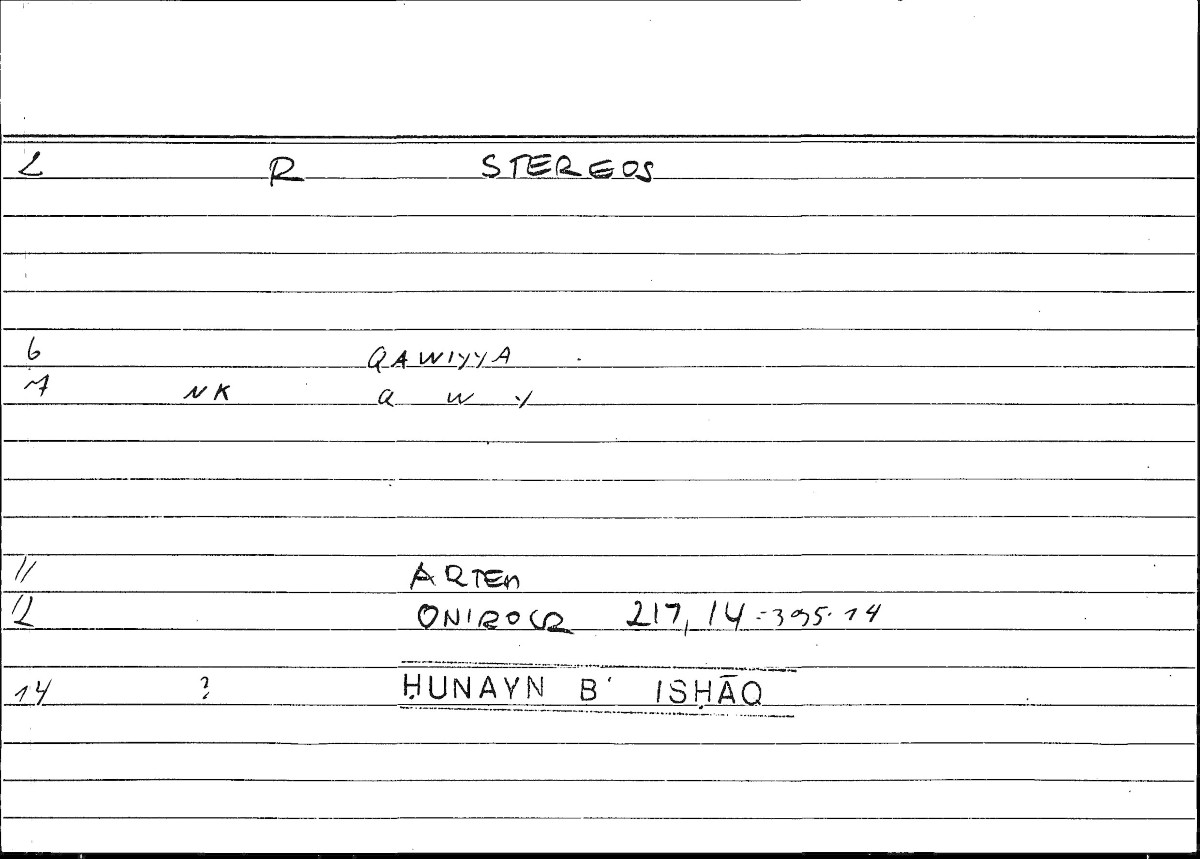 2 R STEREOS
6 QAWIYYA
7 NK Q W Y
11 ARTEM
12 ONIROCR 217,14 = 395.14
14 ? ḤUNAYN B' ISḤĀQ